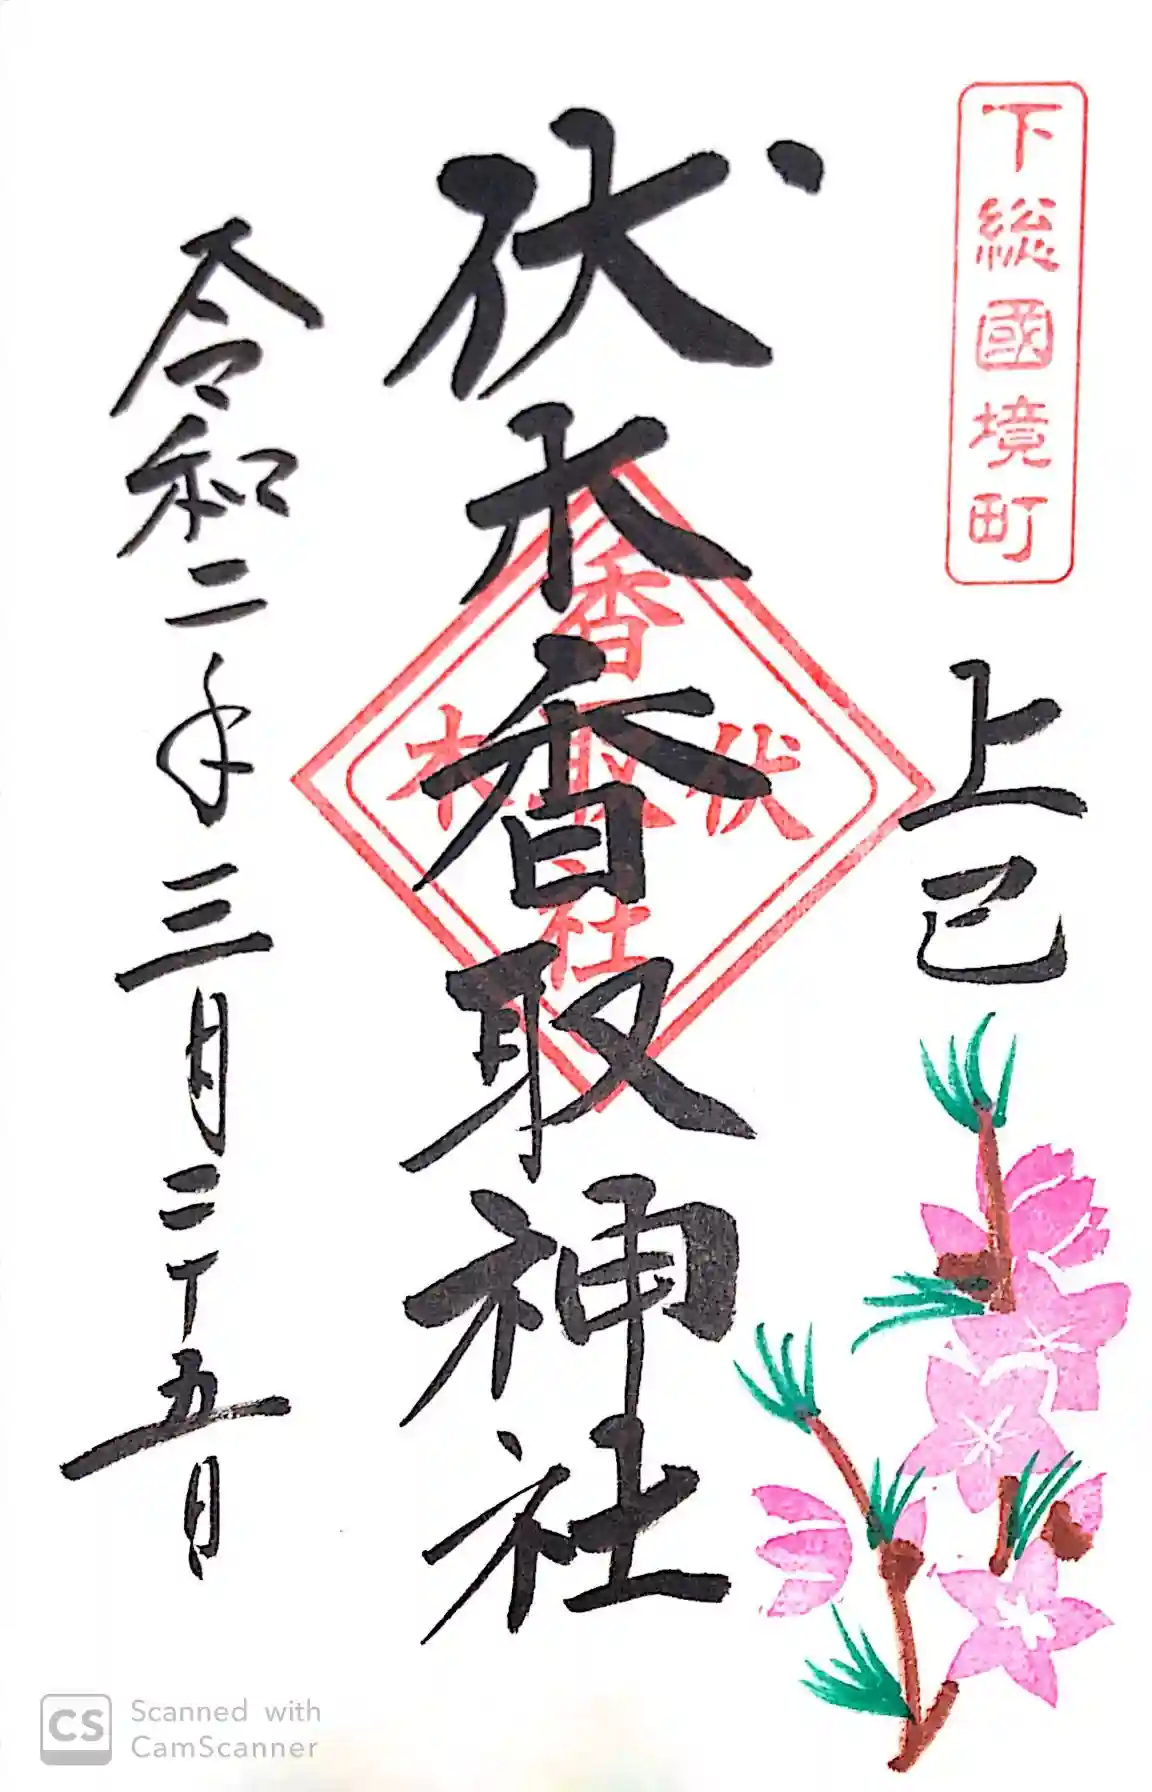 下総國境町
上巳
伏木香取神社
伏木
香取社
令和二年三月二十五日
CS
Scanned with
CamScanner